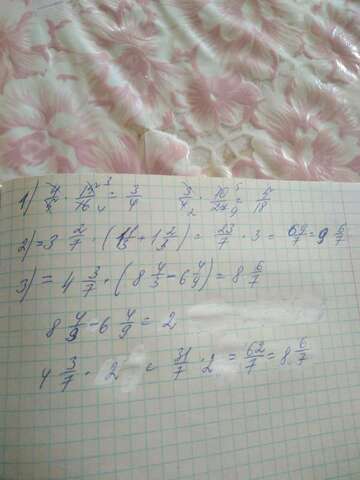 1) 4/5 · 15/16 = 3/4    3/4 · 10/27 = 5/18
2) = 3 2/7 · ( 1 1/3 + 1 2/3 ) = 23/7 · 3 = 69/7 = 9 6/7
3) = 4 3/7 · ( 8 4/9 - 6 4/9 ) = 8 6/7
8 4/9 - 6 4/9 = 2
4 3/7 · 2 = 31/7 · 2 = 62/7 = 8 6/7